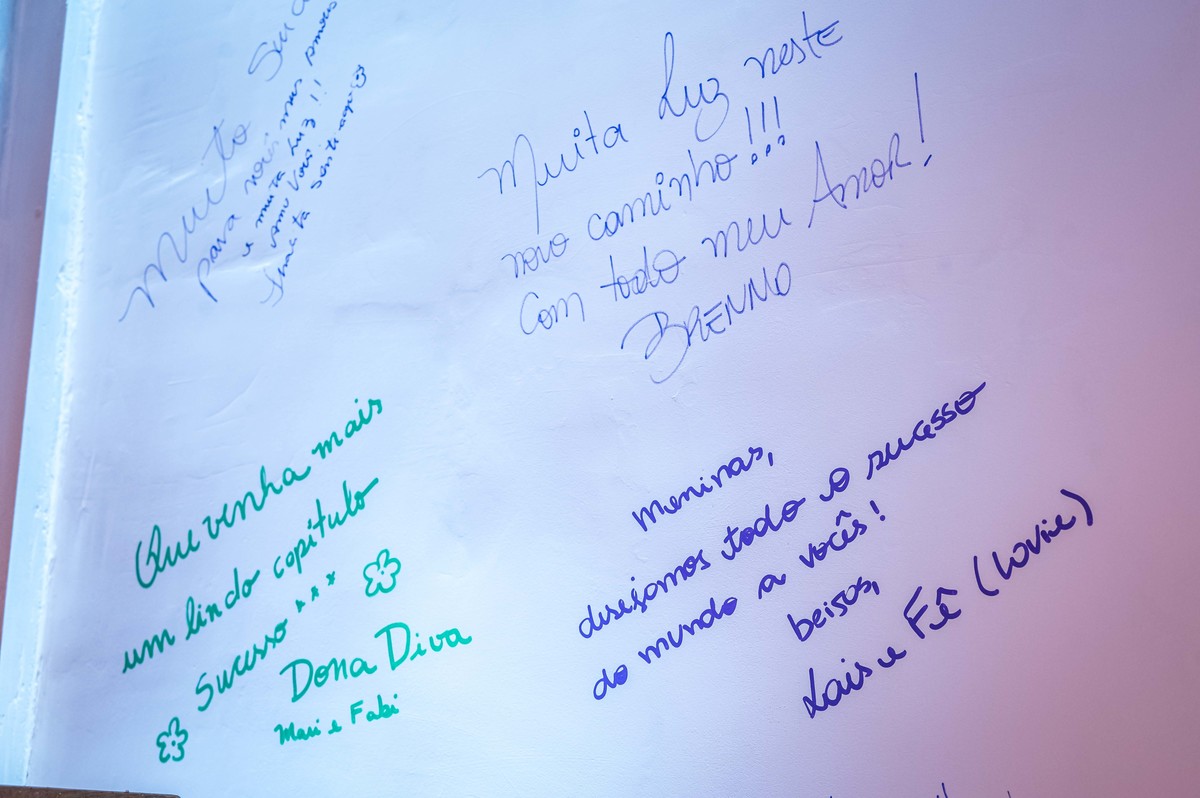 Muito Suc
para vocês meus amores
e muita Luz!!
Amo vocês
Muita Luz neste
novo caminho!!!
Com todo meu Amor!
BRENNO
Que venha mais
um lindo capítulo
Sucesso***
Dona Diva
Mari e Fabi
Meninas,
desejamos todo o sucesso
do mundo a vocês!
beijos,
Lais e Fê (Lovie)